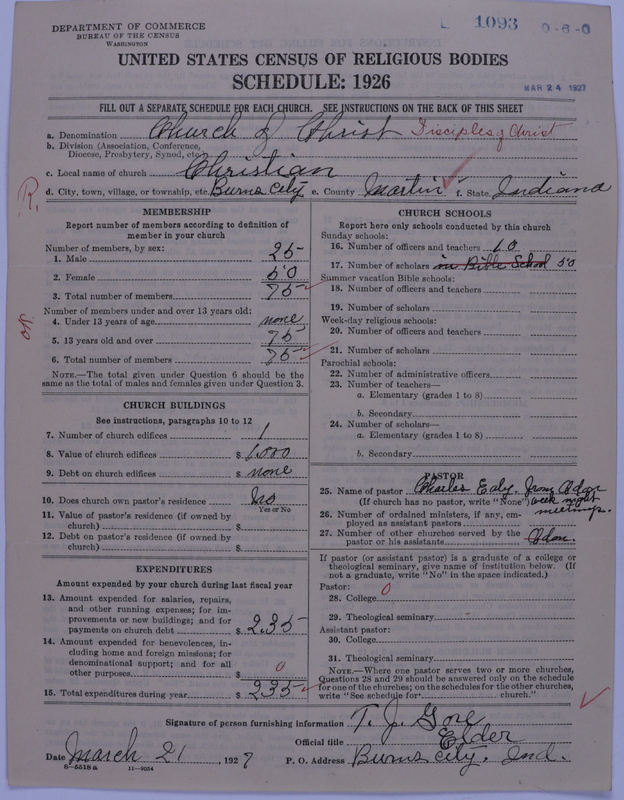 DEPARTMENT OF COMMERCE
BUREAU OF THE CENSUS
WASHINGTON
1093 0-6-0
UNITED STATES CENSUS OF RELIGIOUS BODIES
SCHEDULE: 1926
MAR 24 1927
FILL OUT A SEPARATE SCHEDULE FOR EACH CHURCH. SEE INSTRUCTIONS ON THE BACK OF THIS SHEET
a. Denomination Church of Christ Disciples of Christ
b. Division (Association, Conference,
Diocese, Presbytery, Synod, etc.
c. Local name of church Christian
d. City, town, village, or township, etc. Burns City e. County Martin f. State Indiana
R.
MEMBERSHIP
Report number of members according to definition of
member in your church
Number of members, by sex:
1. Male 25
2. Female 50
3. Total number of members 75
Number of members under and over 13 years old:
4. Under 13 years of age none
5. 13 years old and over 75
6. Total number of members 75
NOTE.—The total given under Question 6 should be
same as the total of males and females given under Question 3.
CHURCH BUILDINGS
See instructions, paragraphs 10 to 12
7. Number of church edifices 1
8. Value of church edifices $ 1,000
9. Debt on church edifices $ none
10. Does church own pastor's residence No
Yes or No
11. Value of pastor's residence (if owned by
church) $
12. Debt on pastor's residence (if owned by
church) $
EXPENDITURES
Amount expended by your church during last fiscal year
13. Amount expended for salaries, repairs,
and other running expenses; for im-
provements or new buildings; and for
payments on church debt $ 235
14. Amount expended for benevolences, in-
cluding home and foreign missions; for
denominational support; and for all
other purposes $ 0
15. Total expenditures during year $ 235
CHURCH SCHOOLS
Report here only schools conducted by this church
Sunday schools:
16. Number of officers and teachers 10
17. Number of scholars in Bible School 50
Summer vacation Bible schools:
18. Number of officers and teachers
19. Number of scholars
Week-day religious schools:
20. Number of officers and teachers
21. Number of scholars
Parochial schools:
22. Number of administrative officers
23. Number of teachers—
a. Elementary (grades 1 to 8)
b. Secondary
24. Number of scholars—
a. Elementary (grades 1 to 8)
b. Secondary
PASTOR
25. Name of pastor Charles Edy. from Odon
(If church has no pastor, write "None") week night
meetings.
26. Number of ordained ministers, if any, em-
ployed as assistant pastors
27. Number of other churches served by the
pastor or his assistants Odon.
If pastor (or assistant pastor) is a graduate of a college or
theological seminary, give name of institution below. (If
not a graduate, write "No" in the space indicated.)
Pastor: 0
28. College
29. Theological seminary
Assistant pastor:
30. College
31. Theological seminary
NOTE.—Where one pastor serves two or more churches,
Questions 28 and 29 should be answered only on the schedule
for one of the churches; on the schedules for the other churches,
write "See schedule for church."
Signature of person furnishing information T. J. Gore
Official title Elder
Date March 21, 1927 P. O. Address Burns City, Ind.
8-5518a 11-9054